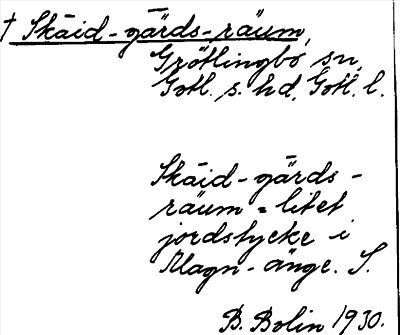 † Skäid-gärds-räum,
Grötlingbo sn,
Gotl. s. hd, Gotl. l.
Skäid-gärds-
räum = litet
jordstycke i
Magn-änge. S.
B. Bolin 1930.